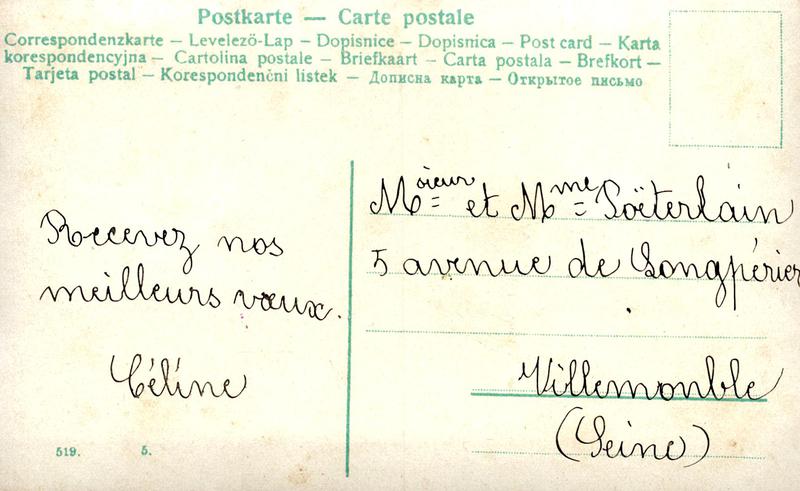 Postkarte — Carte postale
Correspondenzkarte – Levelező-Lap – Dopisnice – Dopisnica – Post card – Karta
korespondencyjna – Cartolina postale – Briefkaart – Carta postala – Brefkort –
Tarjeta postal – Korespondenčni listek – Дописна карта – Открытое письмо
Recevez nos
meilleurs vœux.
Céline
Msieur et Mme Soëterlain
5 avenue de Longpérier
Villemonble
(Seine)
519. 5.